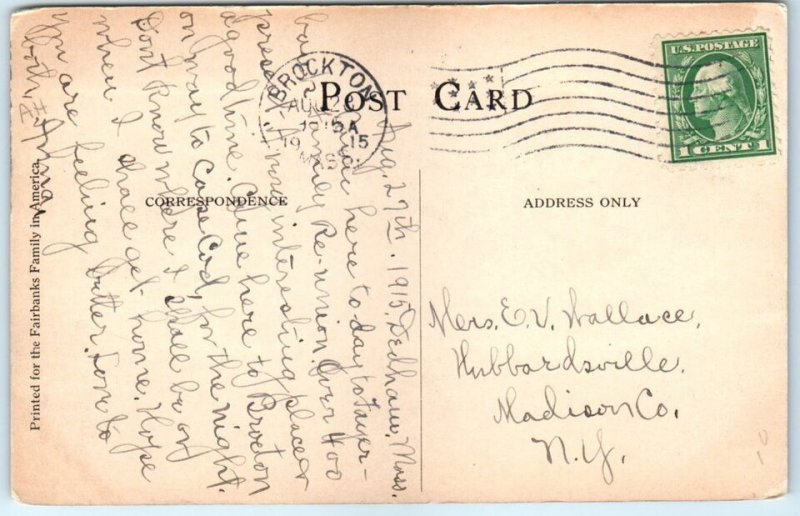 POST CARD
U.S. POSTAGE
1 CENT 1
BROCKTON
AUG
1915
MASS
CORRESPONDENCE
ADDRESS ONLY
Printed for the Fairbanks Family in America
Aug. 27th. 1915, Dedham, Mass.
here to day to Fayer-
family Re-union. Over 400
present. A very interesting place
a good time. Came here to Brocton
on way to Cape Cod, for the night.
Dont know where I shall be or
when I shall get home. Hope
you are feeling better. Love to
Mrs. E. V. Wallace,
Hubbardsville,
Madison Co.
N.Y.